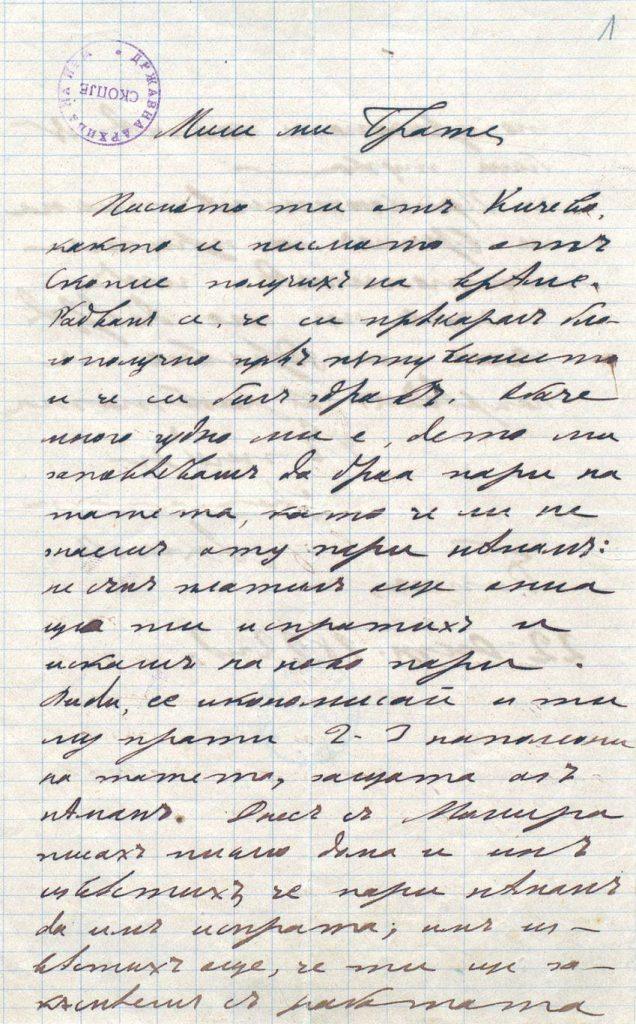 1
ДРЖАВНА АРХИВА НА НРМ
СКОПЈЕ
Мили ми Брате,
Писмото ти отъ Кичево,
както и писмото отъ
Скопие получихъ на врѣме.
Радвамъ се, че си прѣкаралъ бла-
гополучно прѣзъ пътуванието
и че си билъ здравъ. Обаче
много чудно ми е, дето ми
заповѣдвашъ да драа пари на
татета, като че ли не
знаешъ оту пари нѣмамъ:
не съмъ платилъ още ония
що ти испратихъ и
искашъ на ново пари.
Види, се икономисай и ти
му прати 2-3 наполеони
на татета, защото азъ
нѣмамъ. Днесъ съ
писахъ писмо дома и имъ
извѣстихъ че пари нѣмамъ
да имъ испратa; имъ из-
вѣстихъ още, че ти ще за-
къснеешъ съ работата